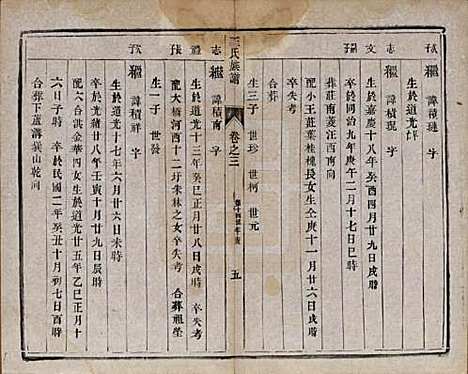 繼 諱積璉 字
生於道光
志 繼 諱積琨 字
生於嘉慶十八年癸酉四月廿九日辰時
卒於同治九年庚午二月二十三日酉時
葬莊南
配小王莊葉桂槐長女生庚十一月廿六日戌時
卒失考
合葬
生三子 世珍 世柯 世元
王氏族譜 卷之三 第十四世年表 五
志 繼 諱積南 字
生於道光十三年癸巳正月廿八日戌時 卒失考
配大橋河西十二圩朱林之女卒失考 合葬祖塋
生一子 世發
繼 諱積祥 字
生於道光十七年六月廿六日未時
卒於光緒廿八年壬寅十月廿九日辰時
配六合洪金華四女生於道光廿五年乙巳正月
六日子時 卒於民國二年癸丑十月初七日酉時
合葬下蘆溝巽山乾向